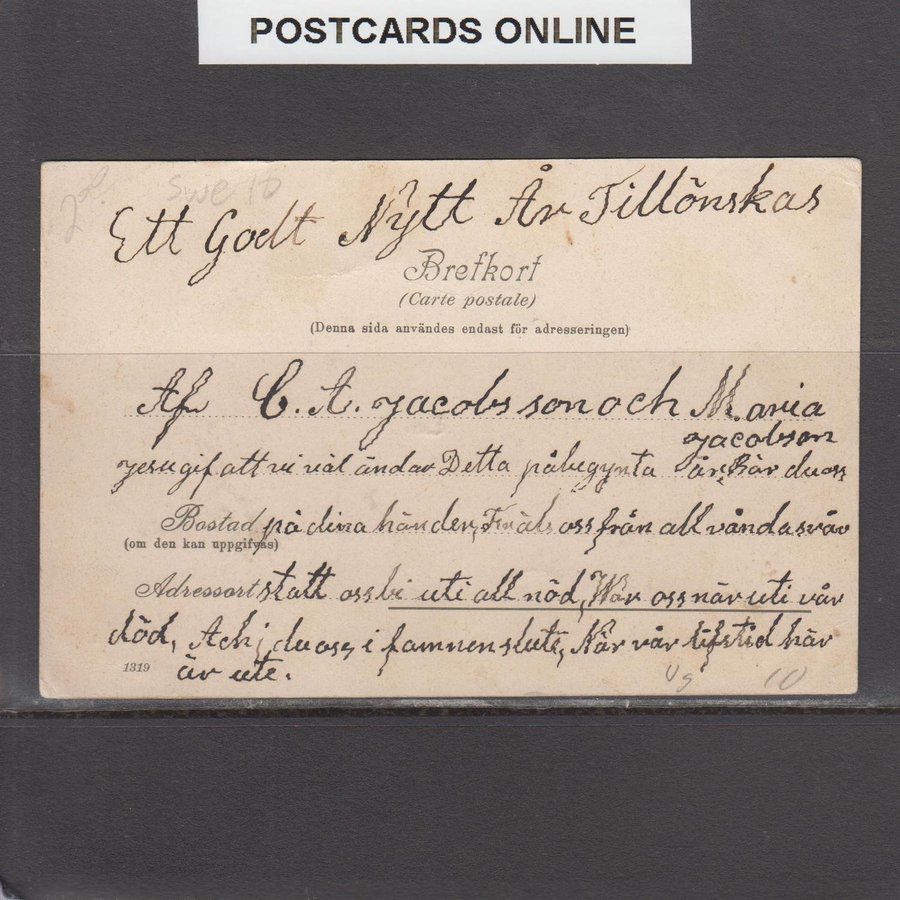 POSTCARDS ONLINE
swe 10
Ett Godt Nytt År Tillönskas
Brefkort
(Carte postale)
(Denna sida användes endast för adresseringen)
Af C. A. Jacobsson och Maria
Jacobson
Jesu gif att vi väl ändar Detta påbegynta år, Bär du oss
Bostad på dina händer, Fräls oss från all våndas vår
(om den kan uppgifvas)
Adressort statt oss bi uti all nöd, War oss när uti vår
död, Ach, du oss, i famnen slute, När vår lifstid här
1319 är ute.
Vg 10